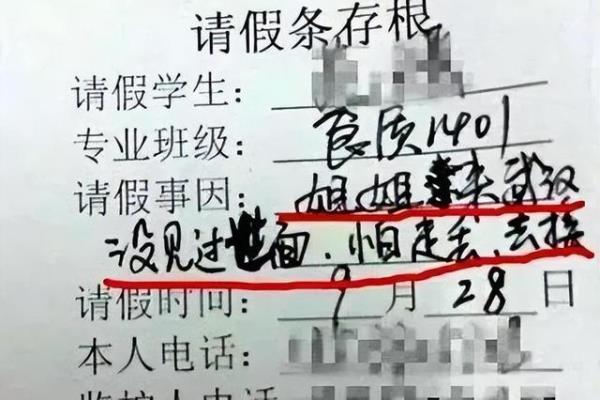 请假条存根
请假学生：
专业班级：食质1401
请假事因：姐姐来武汉
没见过世面，怕走丢，去接
请假时间：9月28日
本人电话：
监护人电话